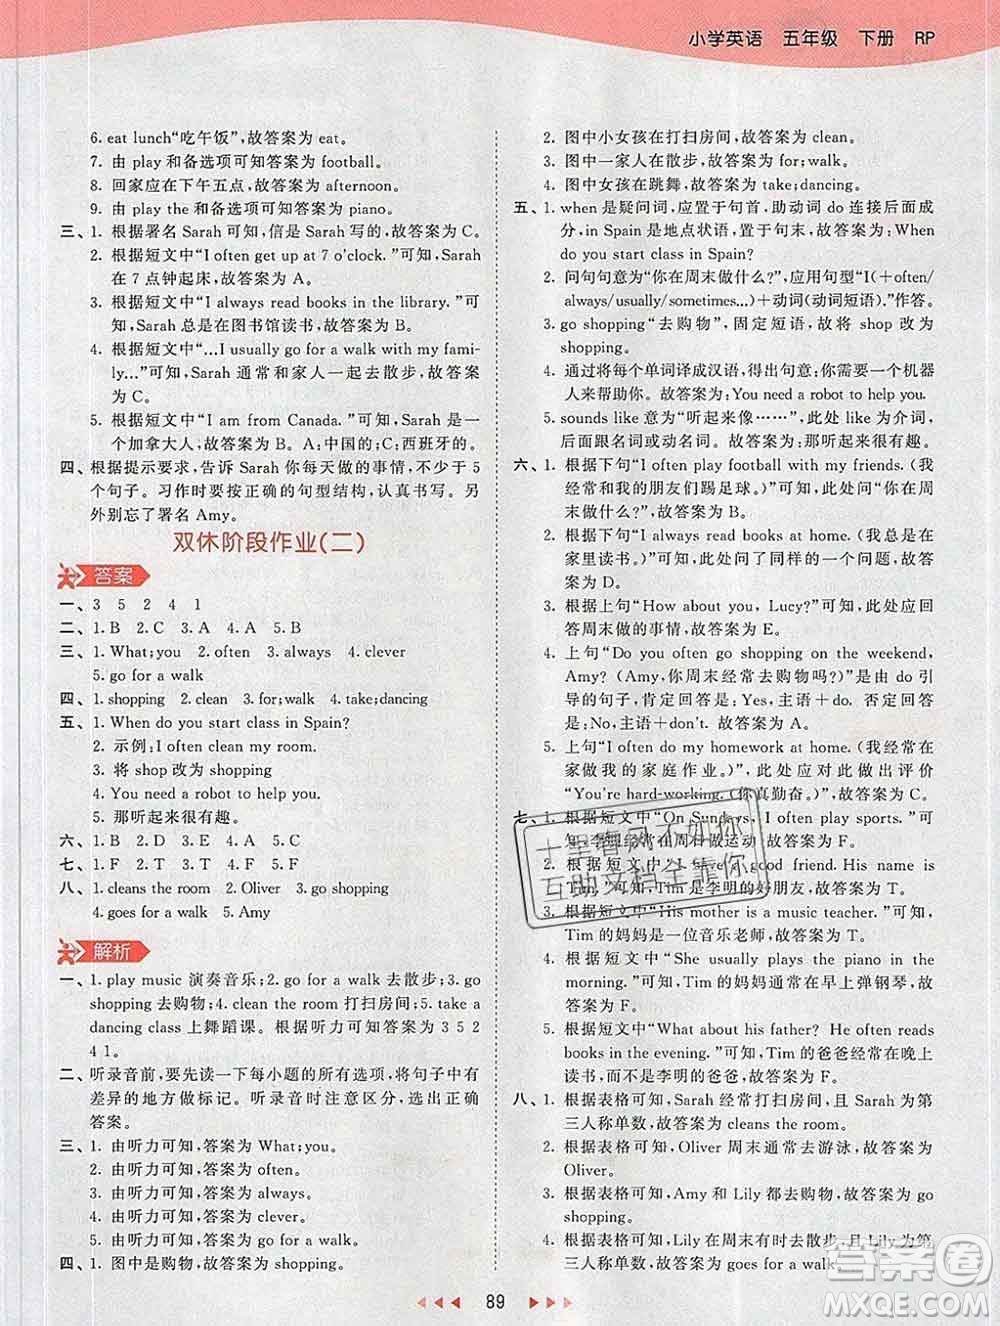 小学英语 五年级 下册 RP
6. eat lunch“吃午饭”,故答案为 eat。
7. 由 play 和备选项可知答案为 football。
8. 回家应在下午五点,故答案为 afternoon。
9. 由 play the 和备选项可知答案为 piano。
三、1. 根据署名 Sarah 可知,信是 Sarah 写的,故答案为 C。
2. 根据短文中“I often get up at 7 o'clock. ”可知, Sarah
在 7 点钟起床,故答案为 A。
3. 根据短文中“I always read books in the library. ”可
知,Sarah 总是在图书馆读书,故答案为 B。
4. 根据短文中“…I usually go for a walk with my fami-
ly…”可知,Sarah 通常和家人一起去散步,故答案
为 C。
5. 根据短文中“I am from Canada. ”可知,Sarah 是一
个加拿大人,故答案为 B。A:中国的;C:西班牙的。
四、根据提示要求,告诉 Sarah 你每天做的事情,不少于 5
个句子。习作时要按正确的句型结构,认真书写。另
外别忘了署名 Amy。
双休阶段作业(二)
答案
一、3 5 2 4 1
二、1. B 2. C 3. A 4. A 5. B
三、1. What;you 2. often 3. always 4. clever
5. go for a walk
四、1. shopping 2. clean 3. for;walk 4. take;dancing
五、1. When do you start class in Spain?
2. 示例:I often clean my room.
3. 将 shop 改为 shopping
4. You need a robot to help you.
5. 那听起来很有趣。
六、1. B 2. D 3. E 4. A 5. C
七、1. F 2. T 3. T 4. F 5. F
八、1. cleans the room 2. Oliver 3. go shopping
4. goes for a walk 5. Amy
解析
一、1. play music 演奏音乐;2. go for a walk 去散步;3. go
shopping 去购物;4. clean the room 打扫房间;5. take a
dancing class 上舞蹈课。根据听力可知答案为 3 5 2
4 1。
二、听录音前,要先读一下每小题的所有选项,将句子中有
差异的地方做标记。听录音时注意区分,选出正确
答案。
三、1. 由听力可知,答案为 What;you。
2. 由听力可知,答案为 often。
3. 由听力可知,答案为 always。
4. 由听力可知,答案为 clever。
5. 由听力可知,答案为 go for a walk。
四、1. 图中是购物,故答案为 shopping。
2. 图中小女孩在打扫房间,故答案为 clean。
3. 图中一家人在散步,故答案为 for;walk。
4. 图中女孩在跳舞,故答案为 take;dancing。
五、1. when 是疑问词,应置于句首,助动词 do 连接后面成
分,in Spain 是地点状语,置于句末,故答案为:When
do you start class in Spain?
2. 问句句意为“你在周末做什么?”,应用句型“I(+often/
always/usually/sometimes…)+动词(动词短语).”作答。
3. go shopping“去购物”,固定短语,故将 shop 改为
shopping。
4. 通过将每个单词译成汉语,得出句意:你需要一个机器
人来帮助你。故答案为:You need a robot to help you.
5. sounds like 意为“听起来像……”,此处 like 为介词,
后面跟名词或动名词。故答案为:那听起来很有趣。
六、1. 根据下句“I often play football with my friends. (我
经常和我的朋友们踢足球。)”可知,此处问“你在周
末做什么?”,故答案为 B。
2. 根据下句“I always read books at home. (我总是在家
里读书。)”可知,此处问了同样的一个问题,故答案
为 D。
3. 根据上句“How about you, Lucy?”可知,此处应回
答周末做的事情,故答案为 E。
4. 上句“Do you often go shopping on the weekend,
Amy? (Amy,你周末经常去购物吗?)”是由 do 引
导的句子,肯定回答是:Yes,主语+do. 否定回答
是:No,主语+don't. 故答案为 A。
5. 上句“I often do my homework at home. (我经常在
家做我的家庭作业。)”,此处应对此做出评价
“You're hard-working. (你真勤奋。)”故答案为 C。
七、1. 根据短文中“On Sundays, I often play sports.”可
知,李明经常在周日做运动,故答案为 F。
2. 根据短文中“I have a good friend. His name is
Tim.”可知,Tim 是李明的好朋友,故答案为 T。
3. 根据短文中“His mother is a music teacher. ”可知,
Tim 的妈妈是一位音乐老师,故答案为 T。
4. 根据短文中“She usually plays the piano in the
morning. ”可知,Tim 的妈妈通常在早上弹钢琴,故
答案为 F。
5. 根据短文中“What about his father? He often reads
books in the evening. ”可知,Tim 的爸爸经常在晚上
读书,而不是李明的爸爸,故答案为 F。
八、1. 根据表格可知,Sarah 经常打扫房间,且 Sarah 为第
三人称单数,故答案为 cleans the room。
2. 根据表格可知,Oliver 周末通常去游泳,故答案为
Oliver。
3. 根据表格可知,Amy 和 Lily 都去购物,故答案为 go
shopping。
4. 根据表格可知,Lily 在周末有时去散步,且 Lily 为第
三人称单数,故答案为 goes for a walk。
十里春风不如你
互助文档全靠你
答案圈
MXQE.COM
89